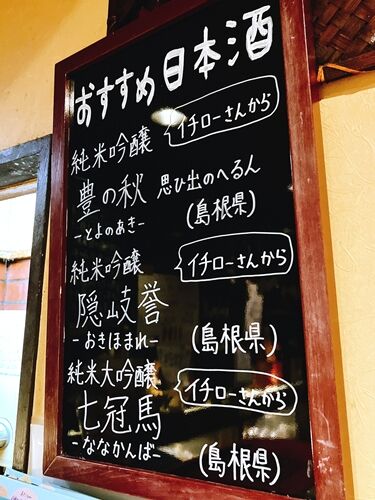 おすすめ日本酒
純米吟醸 イチローさんから
豊の秋 思ひ出のへるん
ーとよのあきー (島根県)
純米吟醸 イチローさんから
隠岐誉
ーおきほまれー (島根県)
純米大吟醸 イチローさんから
七冠馬
ーななかんばー (島根県)